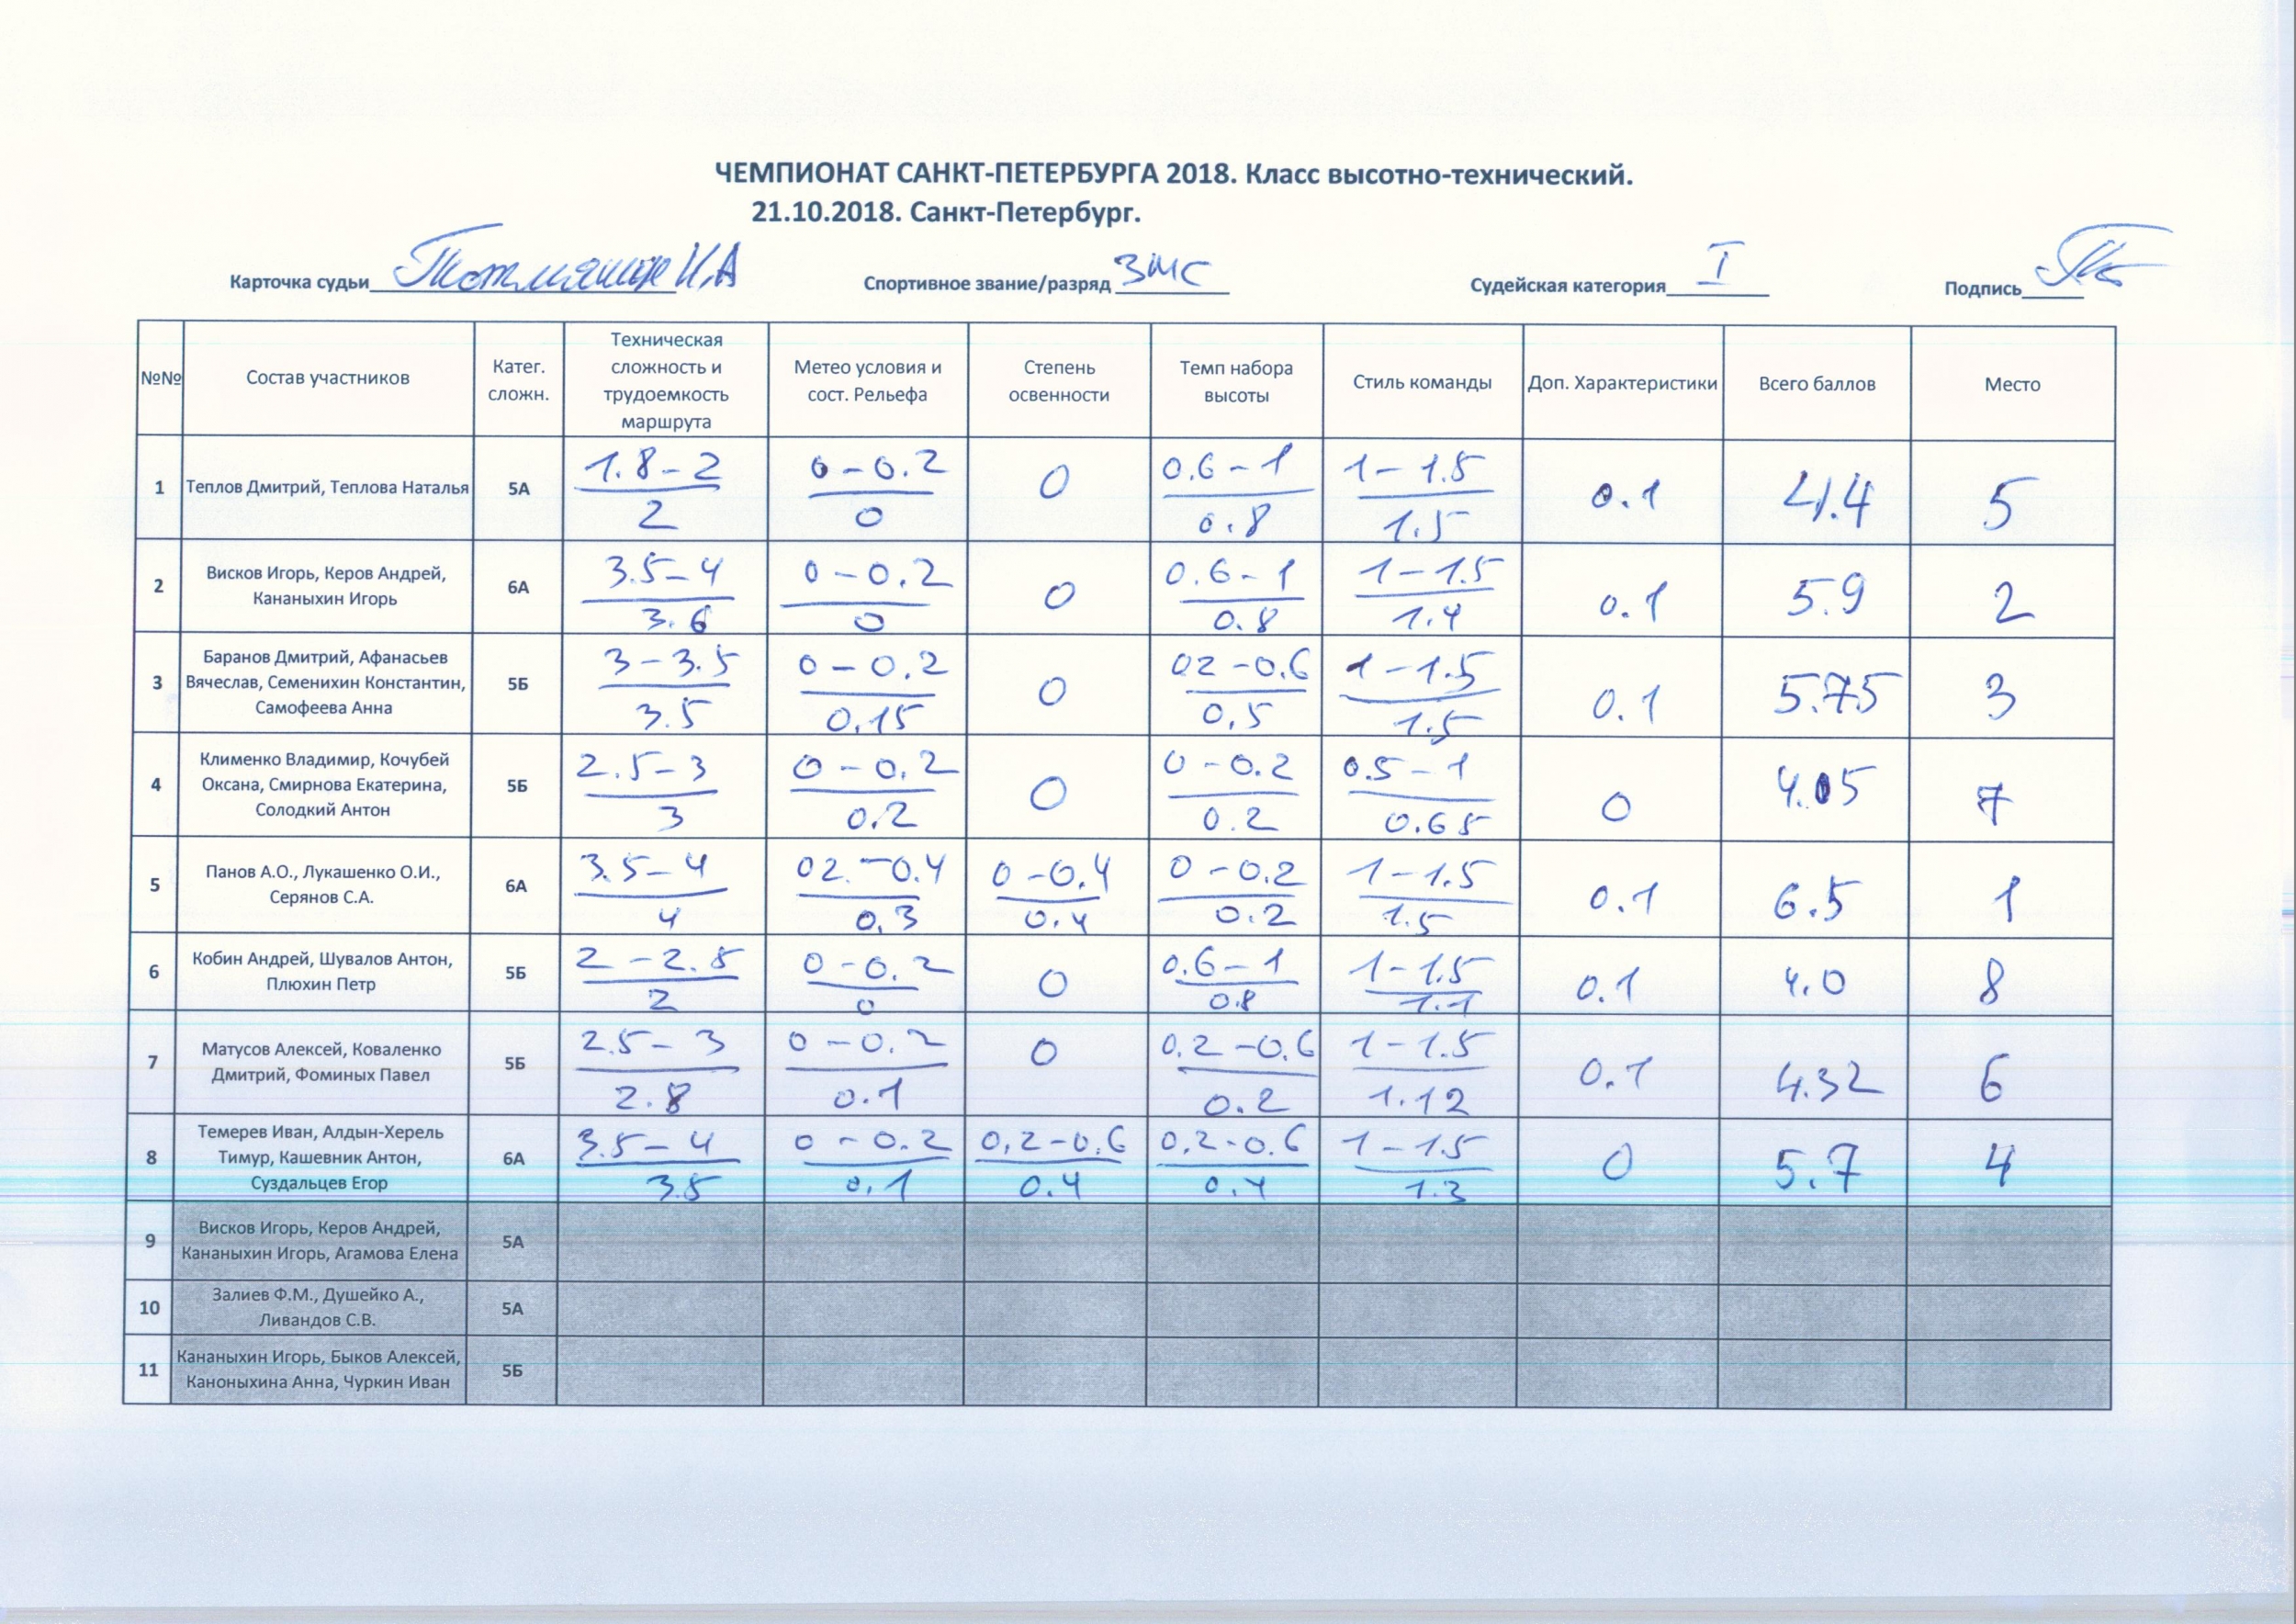 ЧЕМПИОНАТ САНКТ-ПЕТЕРБУРГА 2018. Класс высотно-технический.
21.10.2018. Санкт-Петербург.
Карточка судьи Тотмянин Н.А Спортивное звание/разряд ЗМС Судейская категория I Подпись
№№ Состав участников Катег. сложн. Техническая сложность и трудоемкость маршрута Метео условия и сост. Рельефа Степень освенности Темп набора высоты Стиль команды Доп. Характеристики Всего баллов Место
1 Теплов Дмитрий, Теплова Наталья 5А 1.8-2 0-0.2 0 0.6-1 1-1.5 0.1 4.4 5
2 0 0.8 1.5
2 Висков Игорь, Керов Андрей, 6А 3.5-4 0-0.2 0 0.6-1 1-1.5 0.1 5.9 2
Кананыхин Игорь 3.6 0 0.8 1.4
3 Баранов Дмитрий, Афанасьев 5Б 3-3.5 0-0.2 0 02-0.6 1-1.5 0.1 5.75 3
Вячеслав, Семенихин Константин,
Самофеева Анна 3.5 0.15 0,5 1.5
4 Клименко Владимир, Кочубей 5Б 2.5-3 0-0.2 0 0-0.2 0.5-1 0 4.05 7
Оксана, Смирнова Екатерина,
Солодкий Антон 3 0.2 0.2 0.65
5 Панов А.О., Лукашенко О.И., 6А 3.5-4 02.-0.4 0-0.4 0-0.2 1-1.5 0.1 6.5 1
Серянов С.А. 4 0.3 0.4 0.2 1.5
6 Кобин Андрей, Шувалов Антон, 5Б 2-2.5 0-0.2 0 0.6-1 1-1.5 0.1 4.0 8
Плюхин Петр 2 0 0.8 1.1
7 Матусов Алексей, Коваленко 5Б 2.5-3 0-0.2 0 0.2-0.6 1-1.5 0.1 4.32 6
Дмитрий, Фоминых Павел 2.8 0.1 0.2 1.12
8 Темерев Иван, Алдын-Херель 6А 3.5-4 0-0.2 0,2-0.6 0,2-0.6 1-1.5 0 5.7 4
Тимур, Кашевник Антон,
Суздальцев Егор 3.5 0.1 0.4 0.4 1.3
9 Висков Игорь, Керов Андрей, 5А
Кананыхин Игорь, Агамова Елена
10 Залиев Ф.М., Душейко А., 5А
Ливандов С.В.
11 Кананыхин Игорь, Быков Алексей, 5Б
Каноныхина Анна, Чуркин Иван